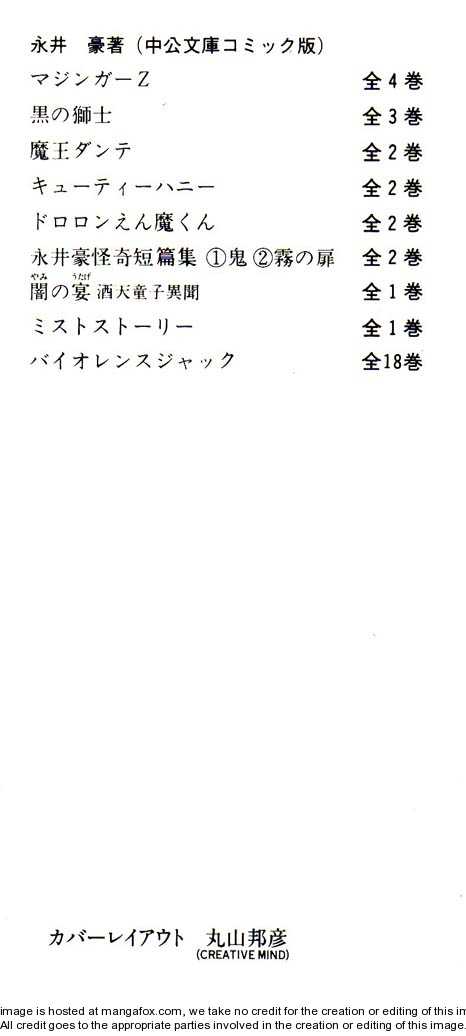 永井　豪著（中公文庫コミック版）
マジンガーZ　全4巻
黒の獅士　全3巻
魔王ダンテ　全2巻
キューティーハニー　全2巻
ドロロンえん魔くん　全2巻
永井豪怪奇短篇集　①鬼②霧の扉　全2巻
やみ　うたげ
闇の宴 酒天童子異聞　全1巻
ミストストーリー　全1巻
バイオレンスジャック　全18巻
カバーレイアウト　丸山邦彦
(CREATIVE MIND)
image is hosted at mangafox.com, we take no credit for the creation or editing of this in
All credit goes to the appropriate parties involved in the creation or editing of this image.